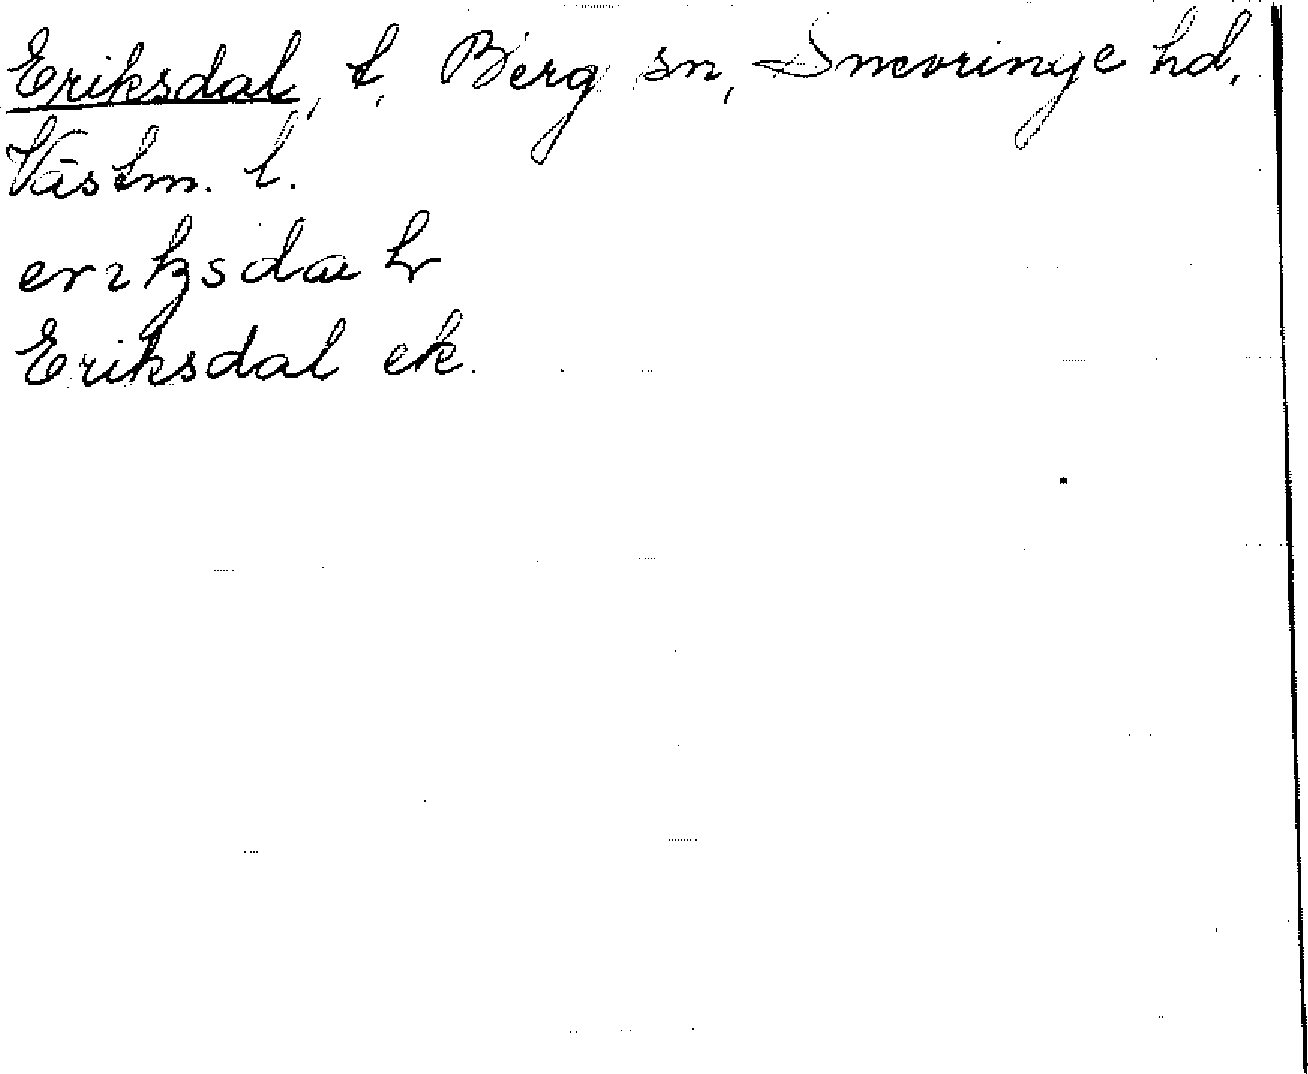 Eriksdal, t, Berg sn, Snevringe hd,
Västm. l.
Eriksdal ek.